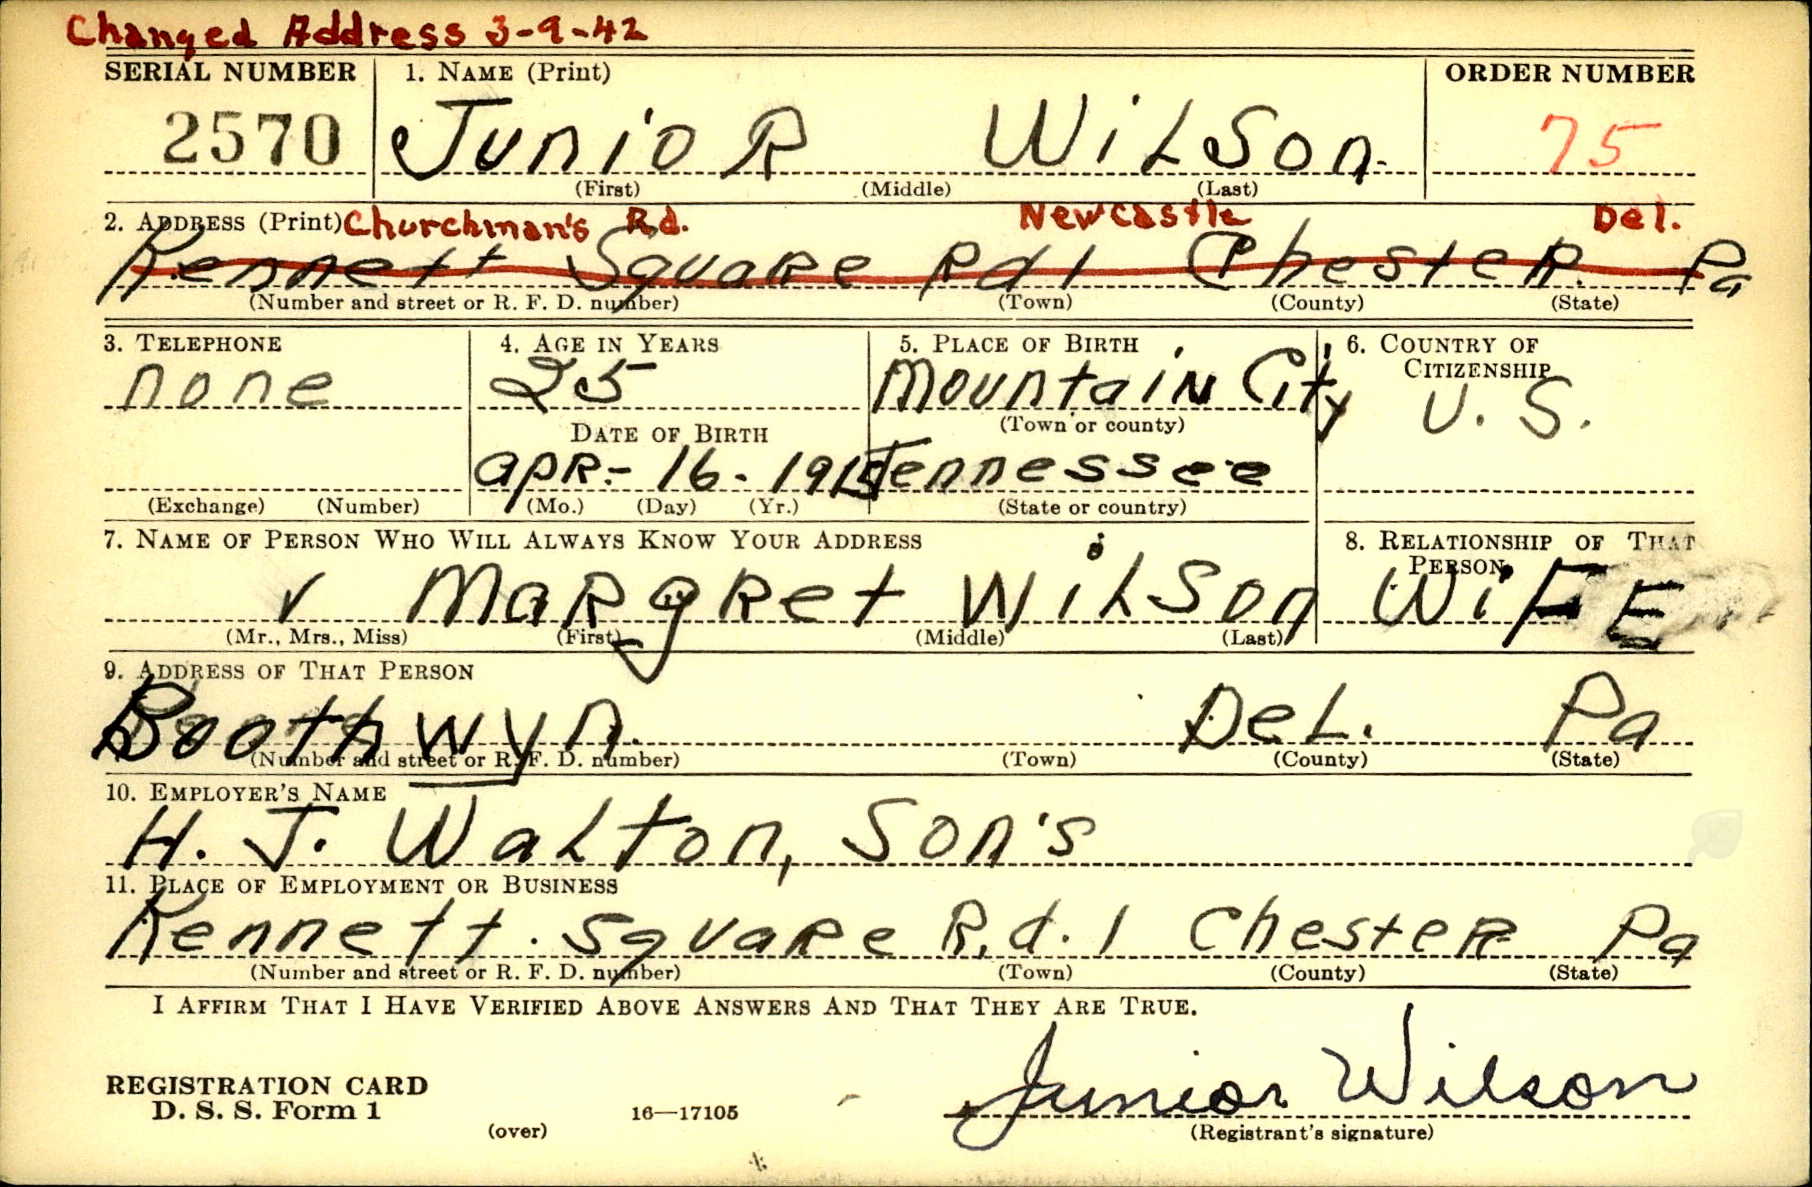 Changed Address 3-9-42
SERIAL NUMBER 1. NAME (Print) ORDER NUMBER
2570 Junior Wilson. 75
(First) (Middle) (Last)
2. ADDRESS (Print) Churchman's Rd. New Castle Del.
Kennett Square Rd 1 Chester. Pa
(Number and street or R. F. D. number) (Town) (County) (State)
3. TELEPHONE 4. AGE IN YEARS 5. PLACE OF BIRTH 6. COUNTRY OF
CITIZENSHIP
none 25 Mountain City U. S.
(Town or county)
DATE OF BIRTH
apr.- 16 - 1915 Tennessee
(Exchange) (Number) (Mo.) (Day) (Yr.) (State or country)
7. NAME OF PERSON WHO WILL ALWAYS KNOW YOUR ADDRESS 8. RELATIONSHIP OF THAT
PERSON
Margret Wilson WiFE
(Mr., Mrs., Miss) (First) (Middle) (Last)
9. ADDRESS OF THAT PERSON
Boothwyn. Del. Pa
(Number and street or R. F. D. number) (Town) (County) (State)
10. EMPLOYER'S NAME
H. J. Walton, Son's
11. PLACE OF EMPLOYMENT OR BUSINESS
Kennett. Square R.d. 1 Chester Pa
(Number and street or R. F. D. number) (Town) (County) (State)
I AFFIRM THAT I HAVE VERIFIED ABOVE ANSWERS AND THAT THEY ARE TRUE.
Junior Wilson
REGISTRATION CARD
D. S. S. Form 1 16—17105
(over) (Registrant's signature)